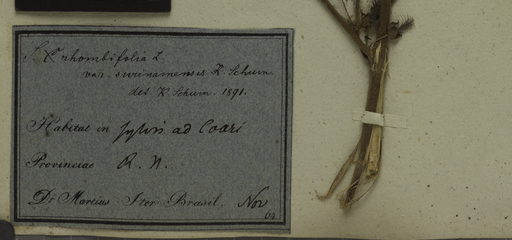 rhombifolia L
var. surinamensis K. Schum.
det. K. Schum. 1891.
Habitat in sylvis ad Coari
Provinciae R. N.
Dr Martius Iter Brasil. Nov